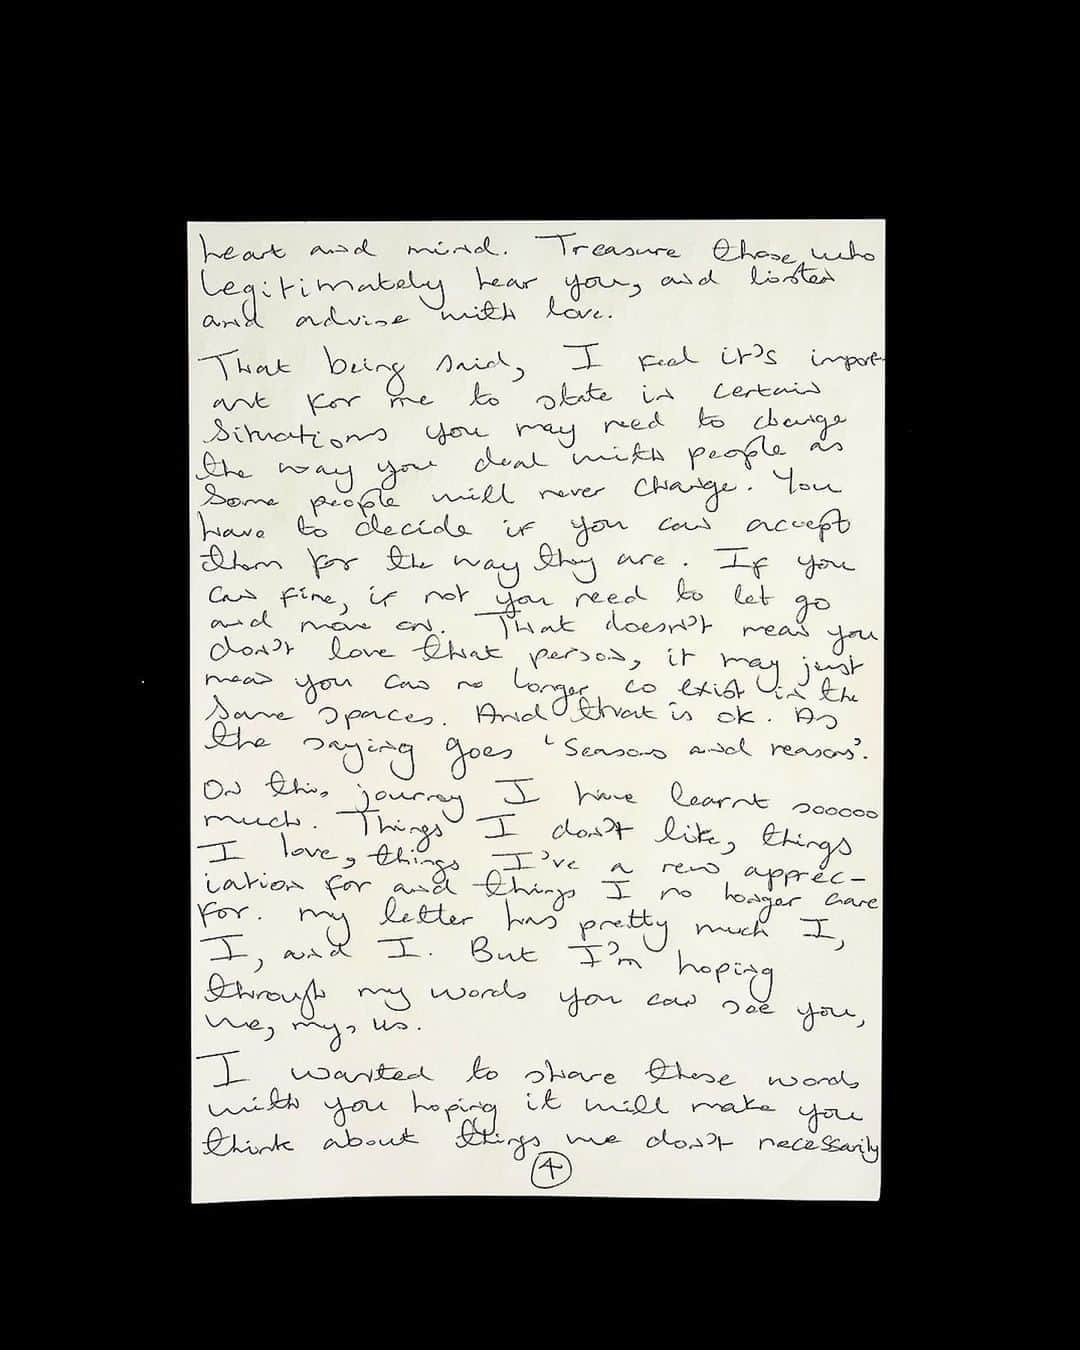 heart and mind. Treasure those who
legitimately hear you, and listen
and advise with love.
That being said, I feel it's import-
ant for me to state in certain
situations you may need to change
the way you deal with people as
some people will never change. You
have to decide if you can accept
them for the way they are. If you
can fine, if not you need to let go
and move on. That doesn't mean you
don't love that person, it may just
mean you can no longer co exist in the
same spaces. And that is ok. As
the saying goes 'Seasons and reasons'.
On this journey I have learnt sooooo
much. Things I don't like, things
I love, things I've a new apprec-
iation for and things I no longer care
for. my letter has pretty much I,
I, and I. But I'm hoping
through my words you can see you,
me, my, us.
I wanted to share these words
with you hoping it will make you
think about things we don't necessarily
4